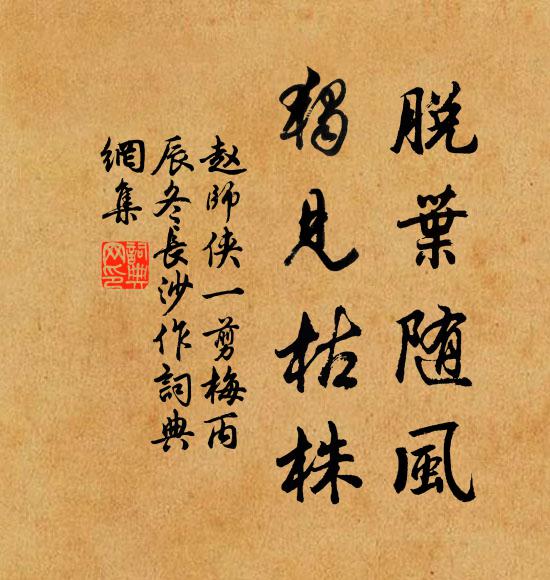 脱葉随風
獨見枯株
赵師侠一剪梅丙
辰冬長沙作詞典
網集
詞典網印